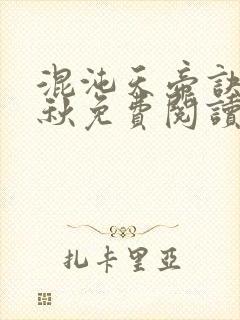 混沌天帝訣
秋免費閱讀
扎卡里亞